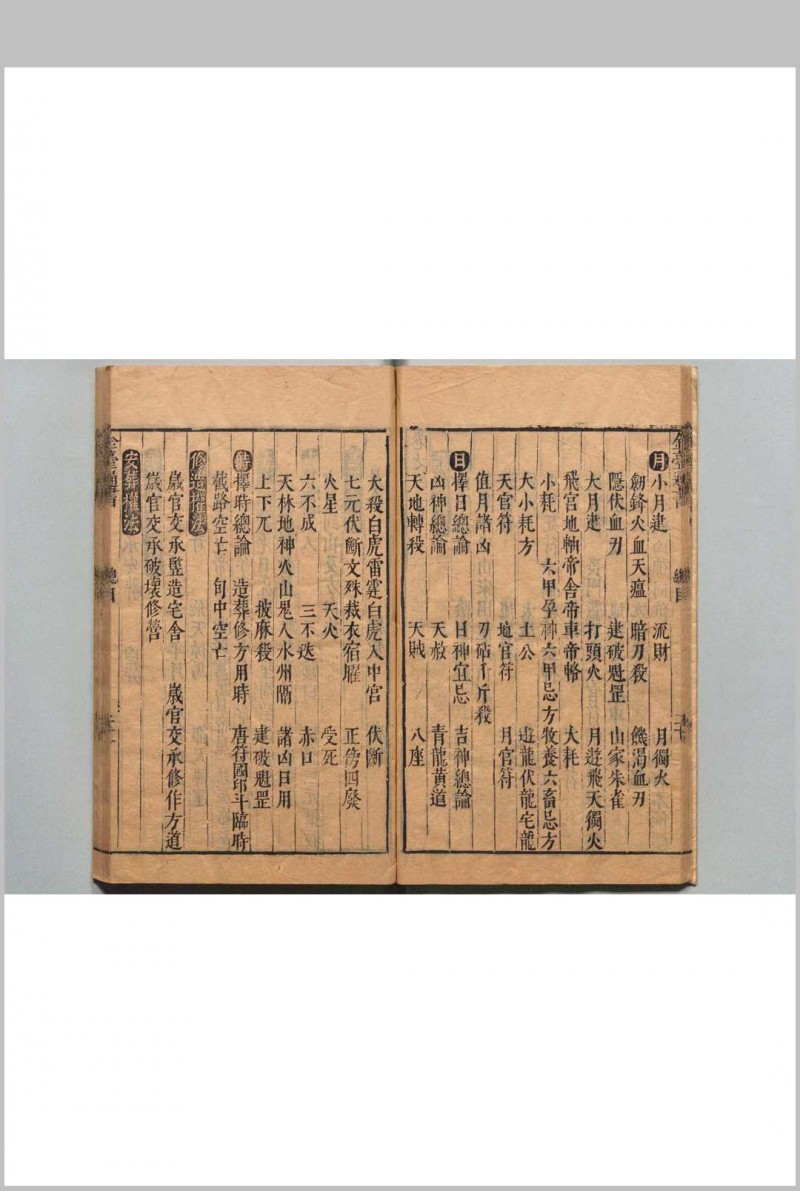 月 小月建 流財 月獨火
劍鋒火血天瘟 暗刀殺 饑渴血刃
隱伏血刃 建破魁罡 山家朱雀
大月建 打頭火 月遊飛天獨火
飛宮地軸帝舍帝車帝輅 大耗
小耗 六甲孕神六甲忌方牧養六畜忌方
大小耗方 土公 遊龍伏龍宅龍
天官符 地官符 月官符
值月諸凶 刃砧千斤殺
日 擇日總論 日神宜忌 吉神總論
凶神總論 天赦 青龍黃道
天地轉殺 天賊 八座
總目
大殺白虎雷霆白虎入中宮 伏斷
七元伏斷文殊裁衣宿臞 正傍四廢
火星 天火 受死
六不成 三不迭 赤口
天林地神火山鬼人水州隔 諸凶日用
上下兀 披麻殺 建破魁罡
時 擇時總論 造葬修方用時 唐符國印斗臨時
截路空亡 旬中空亡
修造權法
嵗官交承竪造宅舍 嵗官交承修作方道
嵗官交承破壞修營
安葬權法
總目